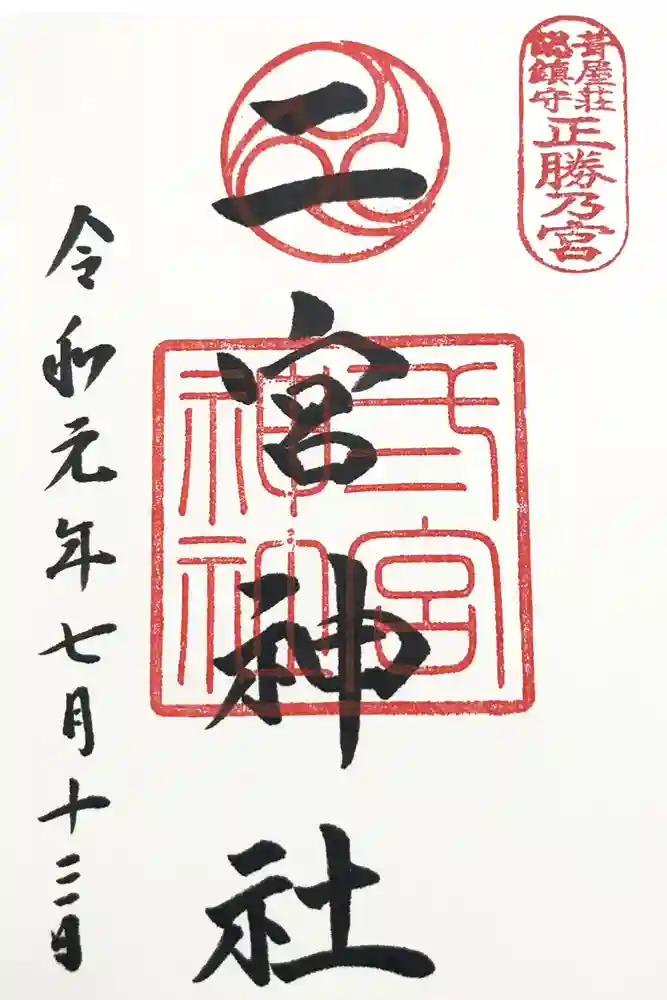 葺屋荘
鎮守
正勝乃宮
二宮神社
弍宮
神社
令和元年七月十三日